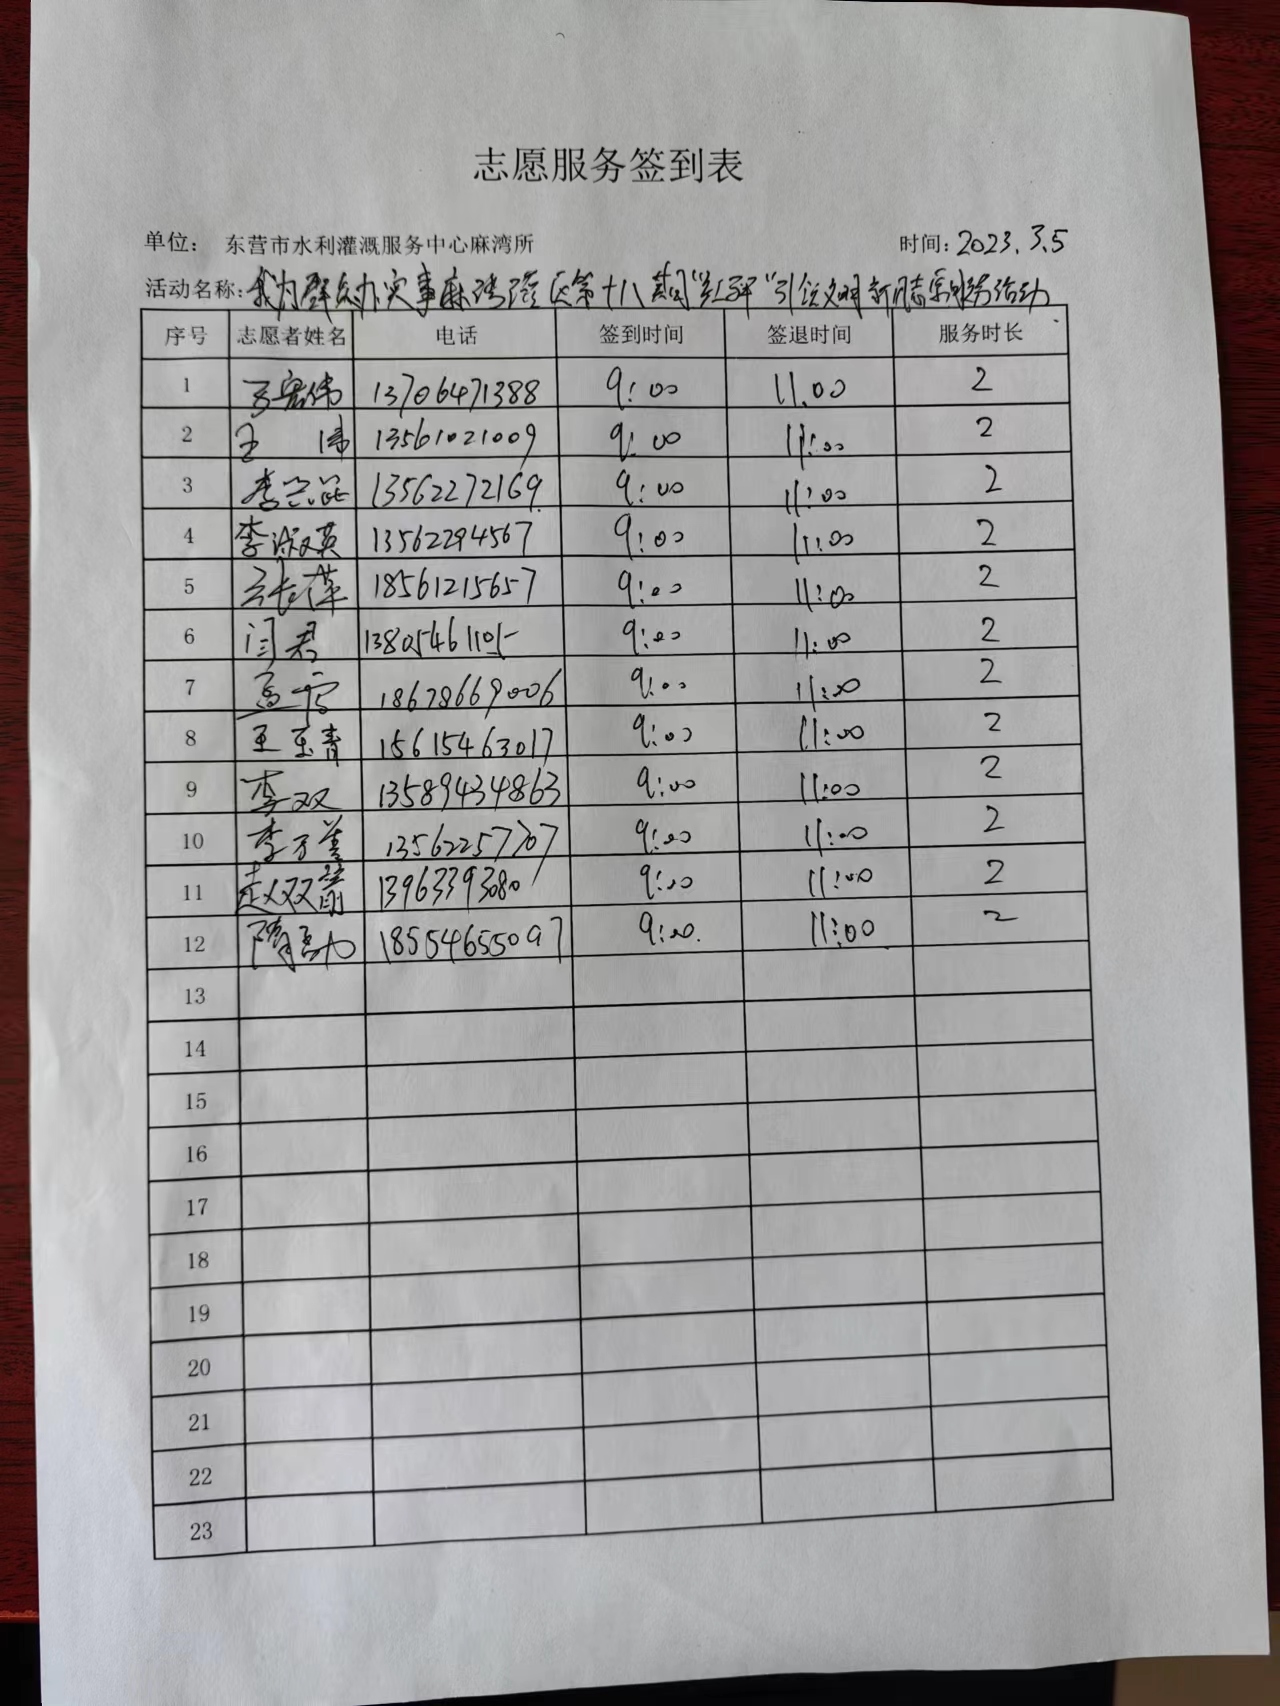 志愿服务签到表
单位： 东营市水利灌溉服务中心麻湾所 时间：2023.3.5
活动名称：我为群众办实事麻湾灌区第十八期"红驿"引领文明新风志愿服务活动
序号 志愿者姓名 电话 签到时间 签退时间 服务时长
1 宏伟 13706471388 9:00 11.00 2
2 王伟 13561021009 9:00 11:00 2
3 李 13562272169 9:00 11:00 2
4 李淑英 13562294567 9:00 11:00 2
5 张萍 18561215657 9:00 11:00 2
6 闫君 13805461105 9:00 11:00 2
7 高雪 18678669006 9:00 11:00 2
8 王玉青 15615463017 9:00 11:00 2
9 李双 13589434863 9:00 11:00 2
10 李方美 13562257707 9:00 11:00 2
11 赵双箭 13963393080 9:00 11:00 2
12 隋 18554655097 9:00. 11:00 2
13
14
15
16
17
18
19
20
21
22
23